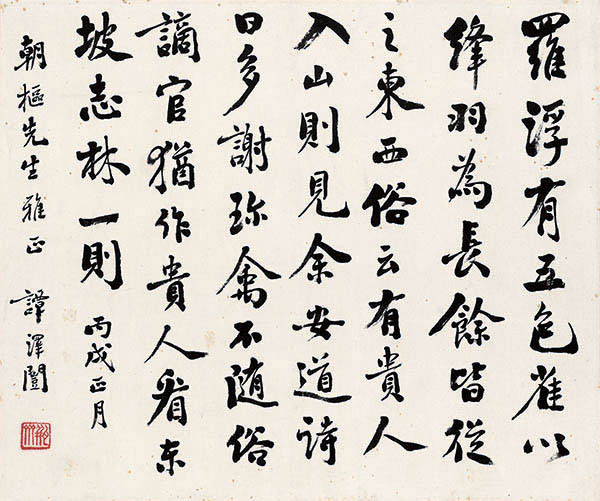 羅浮有五色雀以
絳羽為長餘皆從
之東西俗云有貴人
入山則見余安道詩
日多謝珎禽不随俗
謫官猶作貴人看东
坡志林一則 丙戌正月
朝樞先生雅正 譚澤闓